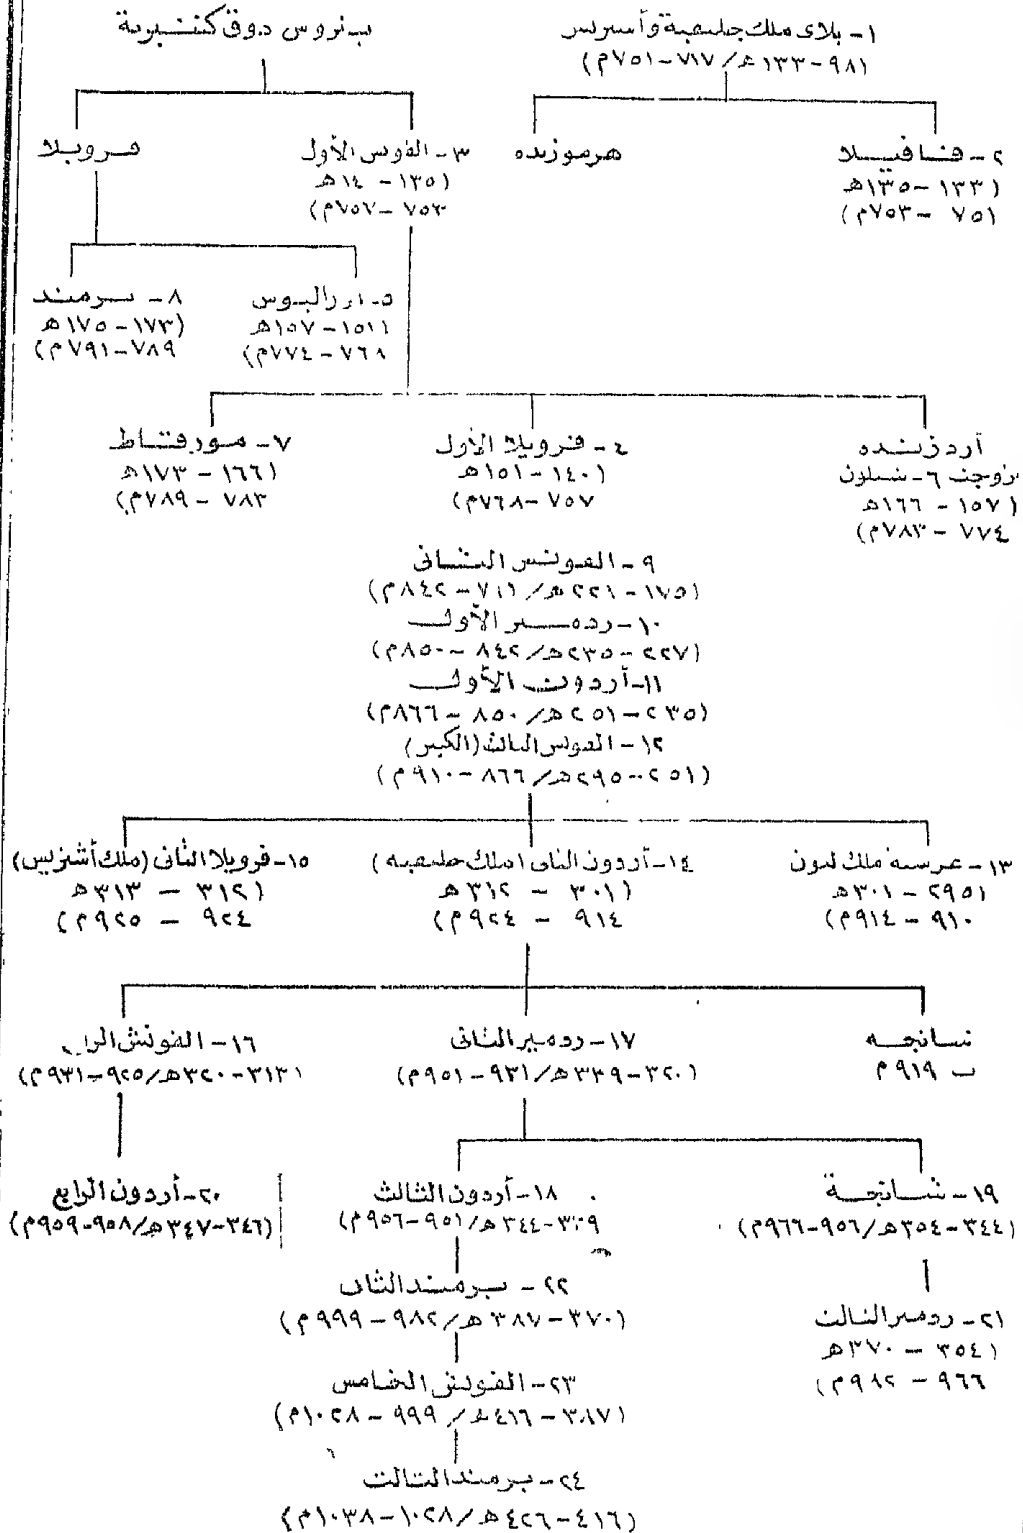 ١- بلاى ملك جليقية وأستريس
(٩٨-١٣٣هـ/٧١٧-٧٥١م)
بتروس دوق كنتبرية
٢- فافيلا
(١٣٣-١٣٥هـ
٧٥١ - ٧٥٣م)
هرموزنده
٣- الفونس الأول
(١٣٥- ١٤٠هـ
٧٥٣ - ٧٥٧م)
فرويلا
٥-
١٥١-١٥٧هـ
٧٦٨ - ٧٧٤م)
٨- برمند
(١٧٣-١٧٥هـ
٧٨٩-٧٩١م)
أردزنده
زوجت ٦- شيلون
(١٥٧ - ١٦٦هـ
٧٧٤ - ٧٨٣م)
٤- فرويلا الأول
(١٤٠-١٥١هـ
٧٥٧ -٧٦٨م)
٧- مورقاط
(١٦٦ - ١٧٣هـ
٧٨٣ - ٧٨٩م)
٩- الفونس الثانى
(١٧٥-٢٢١هـ/ - ٨٤٢م)
١٠- ردمير الأول
(٢٢٧-٢٣٥هـ/٨٤٢ - ٨٥٠م)
١١- أردون الأول
(٢٣٥-٢٥١هـ/٨٥٠ - ٨٦٦م)
١٢- الفونس الثالث (الكبير)
(٢٥١-٢٩٥هـ/٨٦٦ -٩١٠م)
١٣- غرسية ملك ليون
(٢٩٥ - ٣٠١هـ
٩١٠ - ٩١٤م)
١٤- أردون الثانى (ملك جليقية)
(٣٠١ - ٣١٢هـ
٩١٤ - ٩٢٤م)
١٥- فرويلا الثانى (ملك أشتريس)
(٣١٢ - ٣١٣هـ
٩٢٤ - ٩٢٥م)
شانجه
ت ٩١٩م
١٧- ردمير الثانى
(٣٢٠-٣٣٩هـ/٩٣١-٩٥١م)
١٦- الفونش الرابع
(٣١٣-٣٢٠هـ/٩٢٥-٩٣١م)
١٩- شانجة
(٣٤٤-٣٥٤هـ/٩٥٦-٩٦٦م)
١٨- أردون الثالث
٣٣٩-٣٤٤هـ/٩٥١-٩٥٦م)
٢٠- أردون الرابع
(٣٤٦-٣٤٧هـ/٩٥٨-٩٥٩م)
٢٢- برمند الثانى
(٣٧٠-٣٨٧هـ/٩٨٢-٩٩٩م)
٢١- ردمير الثالث
(٣٥٤ - ٣٧٠هـ
٩٦٦ - ٩٨٢م)
٢٣- الفونش الخامس
(٣٨٧-٤١٦هـ/ ٩٩٩ - ١٠٢٨م)
٢٤- برمند الثالث
(٤١٦-٤٢٦هـ/١٠٢٨-١٠٣٨م)